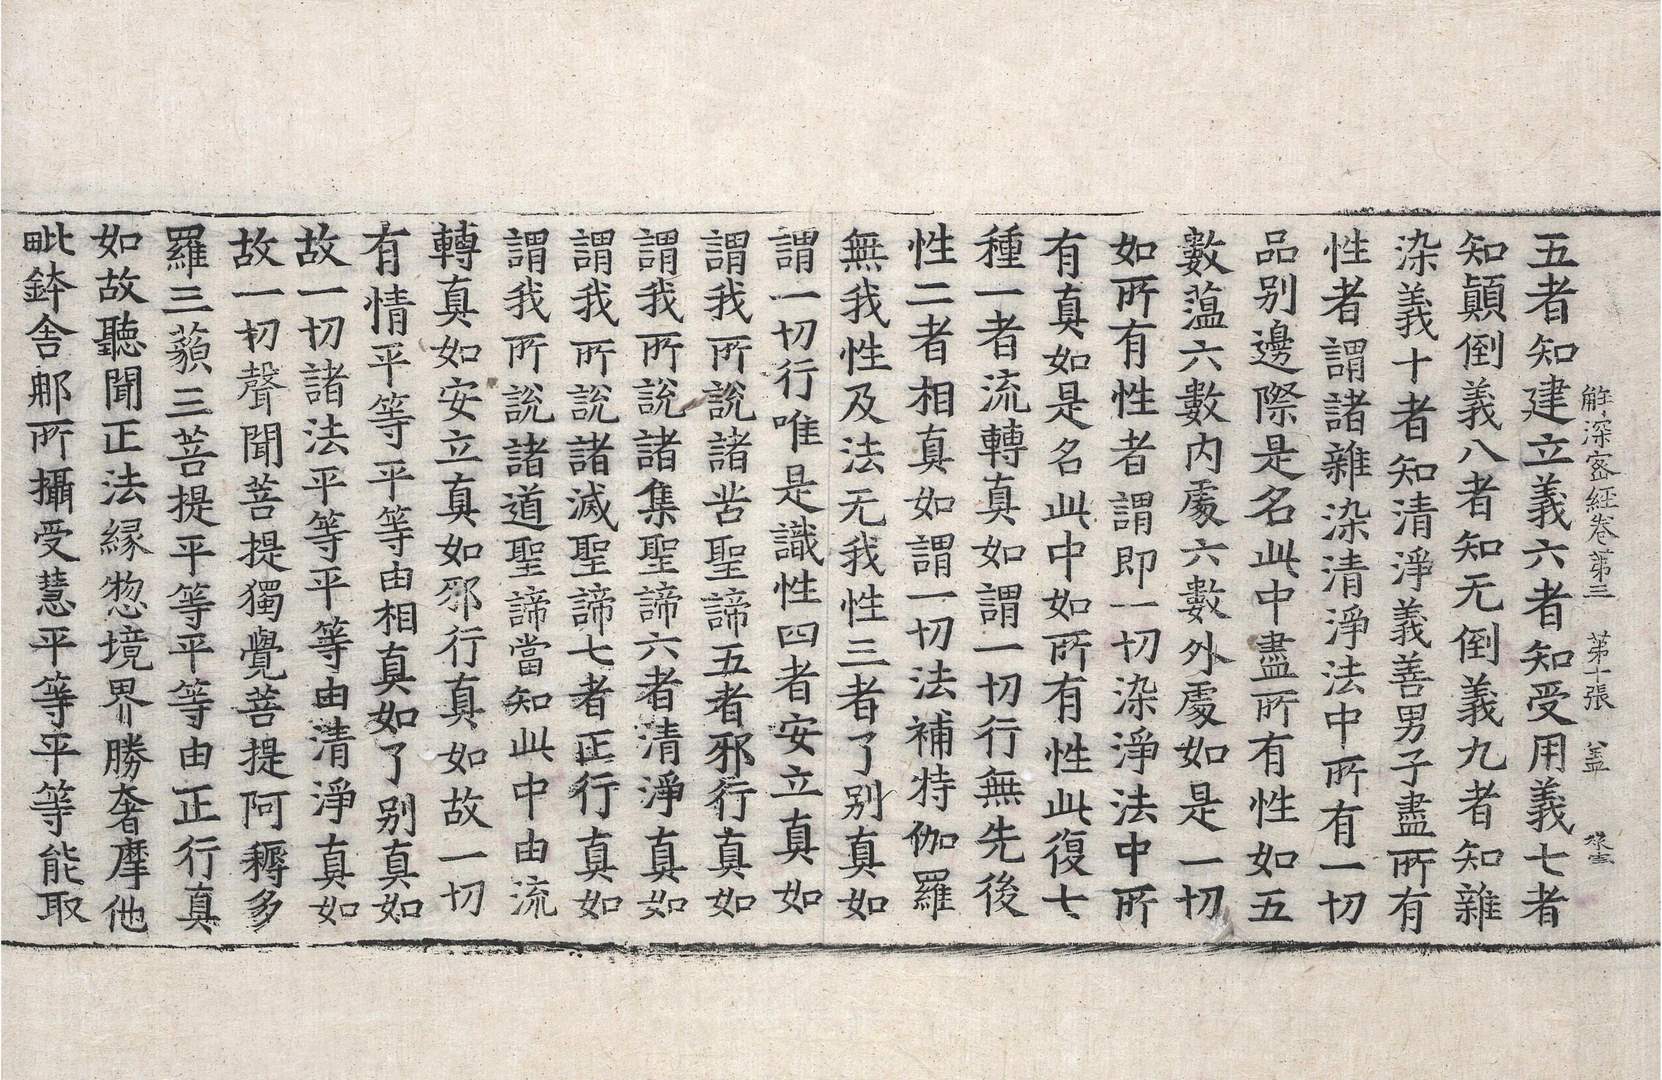 解深密經卷第三　第十張　盖
五者知建立義六者知受用義七者
知顛倒義八者知无倒義九者知雜
染義十者知清淨義善男子盡所有
性者謂諸雜染清淨法中所有一切
品別邊際是名此中盡所有性如五
數蕰六數內處六數外處如是一切
如所有性者謂即一切染淨法中所
有真如是名此中如所有性此復七
種一者流轉真如謂一切行無先後
性二者相真如謂一切法補特伽羅
無我性及法无我性三者了別真如
謂一切行唯是識性四者安立真如
謂我所說諸苦聖諦五者邪行真如
謂我所說諸集聖諦六者清淨真如
謂我所說諸滅聖諦七者正行真如
謂我所說諸道聖諦當知此中由流
轉真如安立真如邪行真如故一切
有情平等平等由相真如了別真如
故一切諸法平等平等由清淨真如
故一切聲聞菩提獨覺菩提阿耨多
羅三藐三菩提平等平等由正行真
如故聽聞正法緣惣境界勝奢摩他
毗鉢舍那所攝受慧平等平等能取